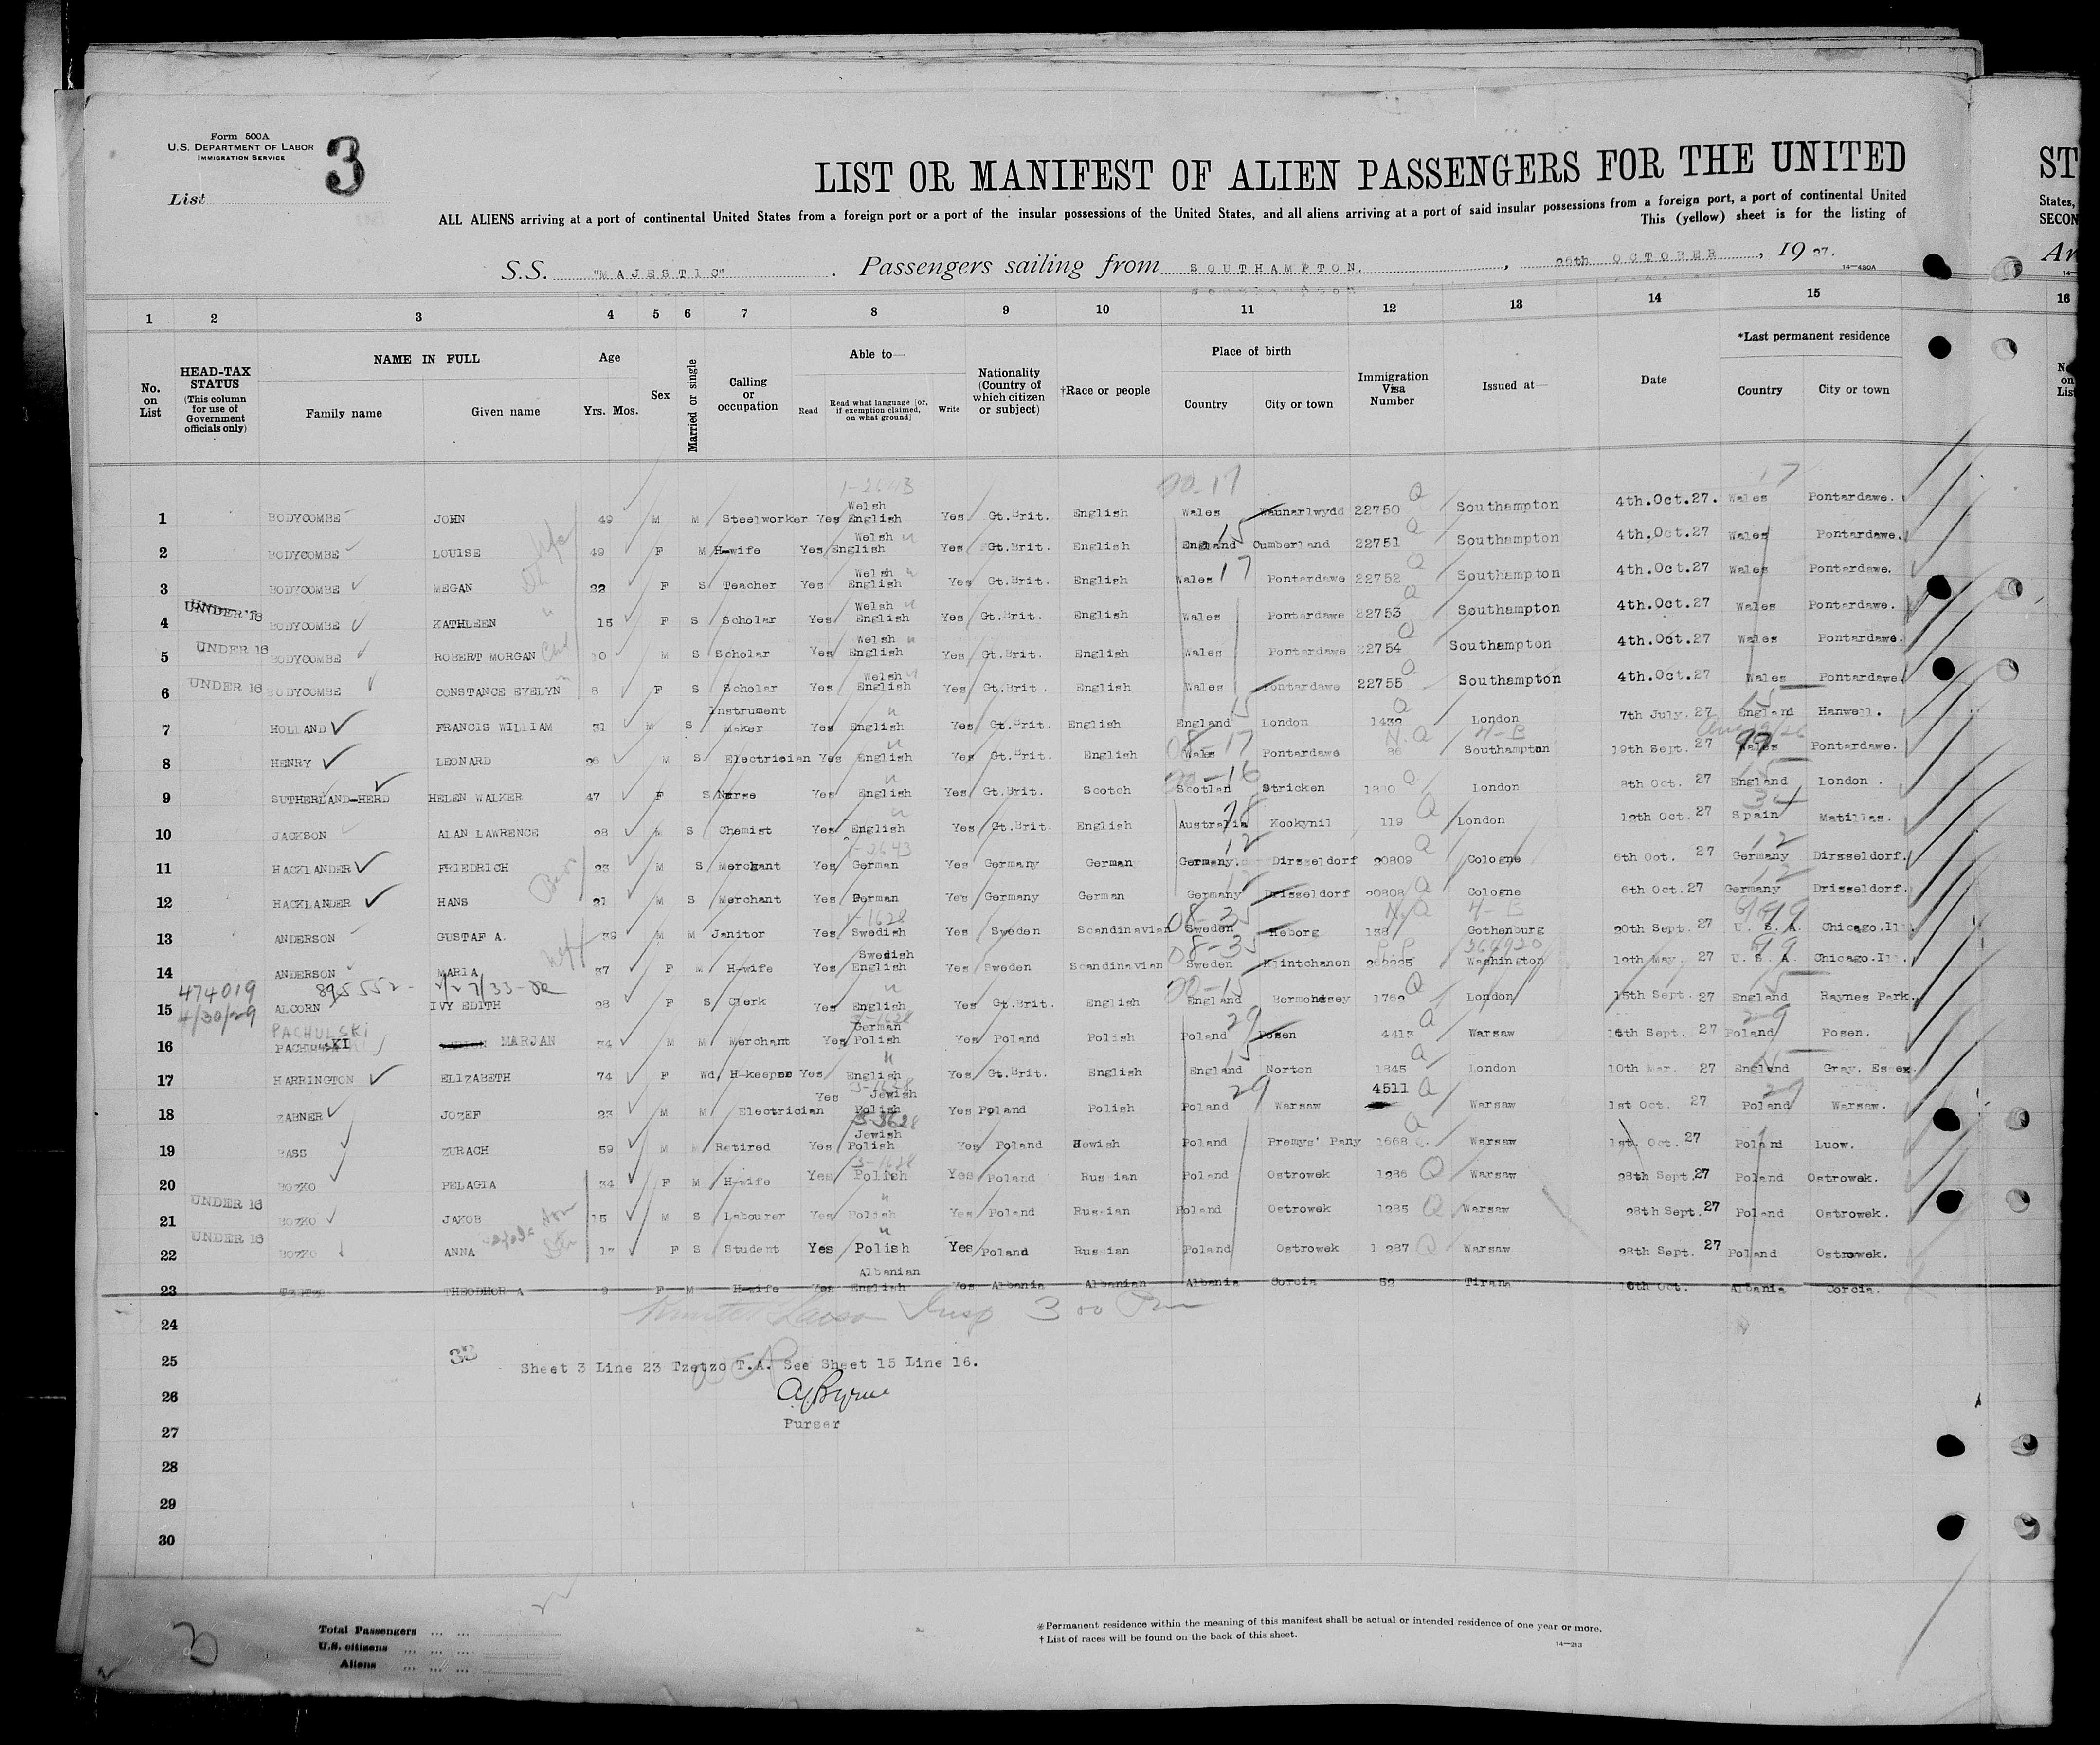 Form 500A
U.S. DEPARTMENT OF LABOR
IMMIGRATION SERVICE
3
List
LIST OR MANIFEST OF ALIEN PASSENGERS FOR THE UNITED
ST
ALL ALIENS arriving at a port of continental United States from a foreign port or a port of the insular possessions of the United States, and all aliens arriving at a port of said insular possessions from a foreign port, a port of continental United
States,
This (yellow) sheet is for the listing of
SECON
S.S. "MAJESTIC". Passengers sailing from SOUTHAMPTON, 26th OCTOBER, 1927.
Ar
14—430A
1 2 3 4 5 6 7 8 9 10 11 12 13 14 15 16
No. on List
HEAD-TAX STATUS (This column for use of Government officials only)
NAME IN FULL
Family name Given name
Age
Yrs. Mos.
Sex
Married or single
Calling or occupation
Able to—
Read Read what language [or, if exemption claimed, on what ground] Write
Nationality (Country of which citizen or subject)
†Race or people
Place of birth
Country City or town
Immigration Visa Number
Issued at—
Date
*Last permanent residence
Country City or town
1 BODYCOMBE JOHN 49 M M Steelworker Yes Welsh English Yes Gt.Brit. English Wales Waunarlwydd 22750 Q Southampton 4th.Oct.27. Wales Pontardawe.
2 BODYCOMBE LOUISE 49 F M H-wife Yes Welsh English Yes Gt.Brit. English England Cumberland 22751 Q Southampton 4th.Oct.27 Wales Pontardawe.
3 BODYCOMBE MEGAN 22 F S Teacher Yes Welsh English Yes Gt.Brit. English Wales Pontardawe 22752 Q Southampton 4th.Oct.27 Wales Pontardawe.
4 UNDER 16 BODYCOMBE KATHLEEN 15 F S Scholar Yes Welsh English Yes Gt.Brit. English Wales Pontardawe 22753 Q Southampton 4th.Oct.27 Wales Pontardawe.
5 UNDER 16 BODYCOMBE ROBERT MORGAN 10 M S Scholar Yes Welsh English Yes Gt.Brit. English Wales Pontardawe 22754 Q Southampton 4th.Oct.27 Wales Pontardawe.
6 UNDER 16 BODYCOMBE CONSTANCE EVELYN 8 F S Scholar Yes Welsh English Yes Gt.Brit. English Wales Pontardawe 22755 Q Southampton 4th.Oct.27 Wales Pontardawe.
7 HOLLAND FRANCIS WILLIAM 31 M S Instrument Maker Yes English Yes Gt.Brit. English England London 1432 Q London 7th July. 27 England Hanwell.
8 HENRY LEONARD 26 M S Electrician Yes English Yes Gt.Brit. English Wales Pontardawe 86 N.Q 4-B Southampton 19th Sept. 27 Wales Pontardawe.
9 SUTHERLAND-HERD HELEN WALKER 47 F S Nurse Yes English Yes Gt.Brit. Scotch Scotlan Stricken Q London 8th Oct. 27 England London.
10 JACKSON ALAN LAWRENCE 28 M S Chemist Yes English Yes Gt.Brit. English Australia Kookynil 119 Q London 12th Oct. 27 Spain Matillas.
11 HACKLANDER FRIEDRICH 23 M S Merchant Yes German Yes Germany German Germany. Dirsseldorf 20809 Q Cologne 6th Oct. 27 Germany Dirsseldorf.
12 HACKLANDER HANS 21 M S Merchant Yes German Yes Germany German Germany Drisseldorf 20808 Q Cologne 6th Oct.27 Germany Drisseldorf.
13 ANDERSON GUSTAF A. 39 M M Janitor Yes Swedish Yes Sweden Scandinavian Sweden Heborg 138 N.Q 4-B Gothenburg 20th Sept. 27 U.S.A. Chicago.Ill.
14 ANDERSON MARIA 37 F M H-wife Yes Swedish English Yes Sweden Scandinavian Sweden Klintchanen Washington 12th May. 27 U.S.A. Chicago.Ill.
474019 895552- 4/30/29
15 ALCORN IVY EDITH 28 F S Clerk Yes English Yes Gt.Brit. English England Bermondsey 1762 Q London 15th Sept. 27 England Raynes Park.
PACHULSKI
16 MARJAN 34 M M Merchant Yes German Polish Yes Poland Polish Poland Posen 4413 Q Warsaw 16th Sept. 27 Poland Posen.
17 HARRINGTON ELIZABETH 74 F Wd. H-keeper Yes English Yes Gt.Brit. English England Norton 1845 Q London 10th Mar. 27 England Gray. Essex.
18 ZABNER JOZEF 23 M M Electrician Yes Jewish Polish Yes Poland Polish Poland Warsaw 4511 Q Warsaw 1st Oct. 27 Poland Warsaw.
19 BASS ZURACH 59 M M Retired Yes Jewish Polish Yes Poland Hewish Poland Premys' Pany 1668 Q Warsaw 1st. Oct. 27 Poland Luow.
20 BOZKO PELAGIA 34 F M H-wife Yes Polish Yes Poland Russian Poland Ostrowek 1286 Q Warsaw 28th Sept.27 Poland Ostrowek.
21 UNDER 16 BOZKO JAKOB 15 M S Labourer Yes Polish Yes Poland Russian Poland Ostrowek 1285 Q Warsaw 28th Sept.27 Poland Ostrowek.
22 UNDER 16 BOZKO ANNA F S Student Yes Polish Yes Poland Russian Poland Ostrowek 1287 Q Warsaw 28th Sept. 27 Poland Ostrowek.
23 THEODHOR A F M H-wife Yes Albanian English Yes Albania Albanian Albania Corcia 52 Tirana 16th Oct. Albania Corcia.
24 3 00 Pm
25 33 Sheet 3 Line 23 Tzetzo T.A. See Sheet 15 Line 16.
26 Byrne
27 Purser
28
29
30
Total Passengers ... ...
U.S. citizens ... ... ...
Aliens ... ... ...
* Permanent residence within the meaning of this manifest shall be actual or intended residence of one year or more.
† List of races will be found on the back of this sheet.
14—213